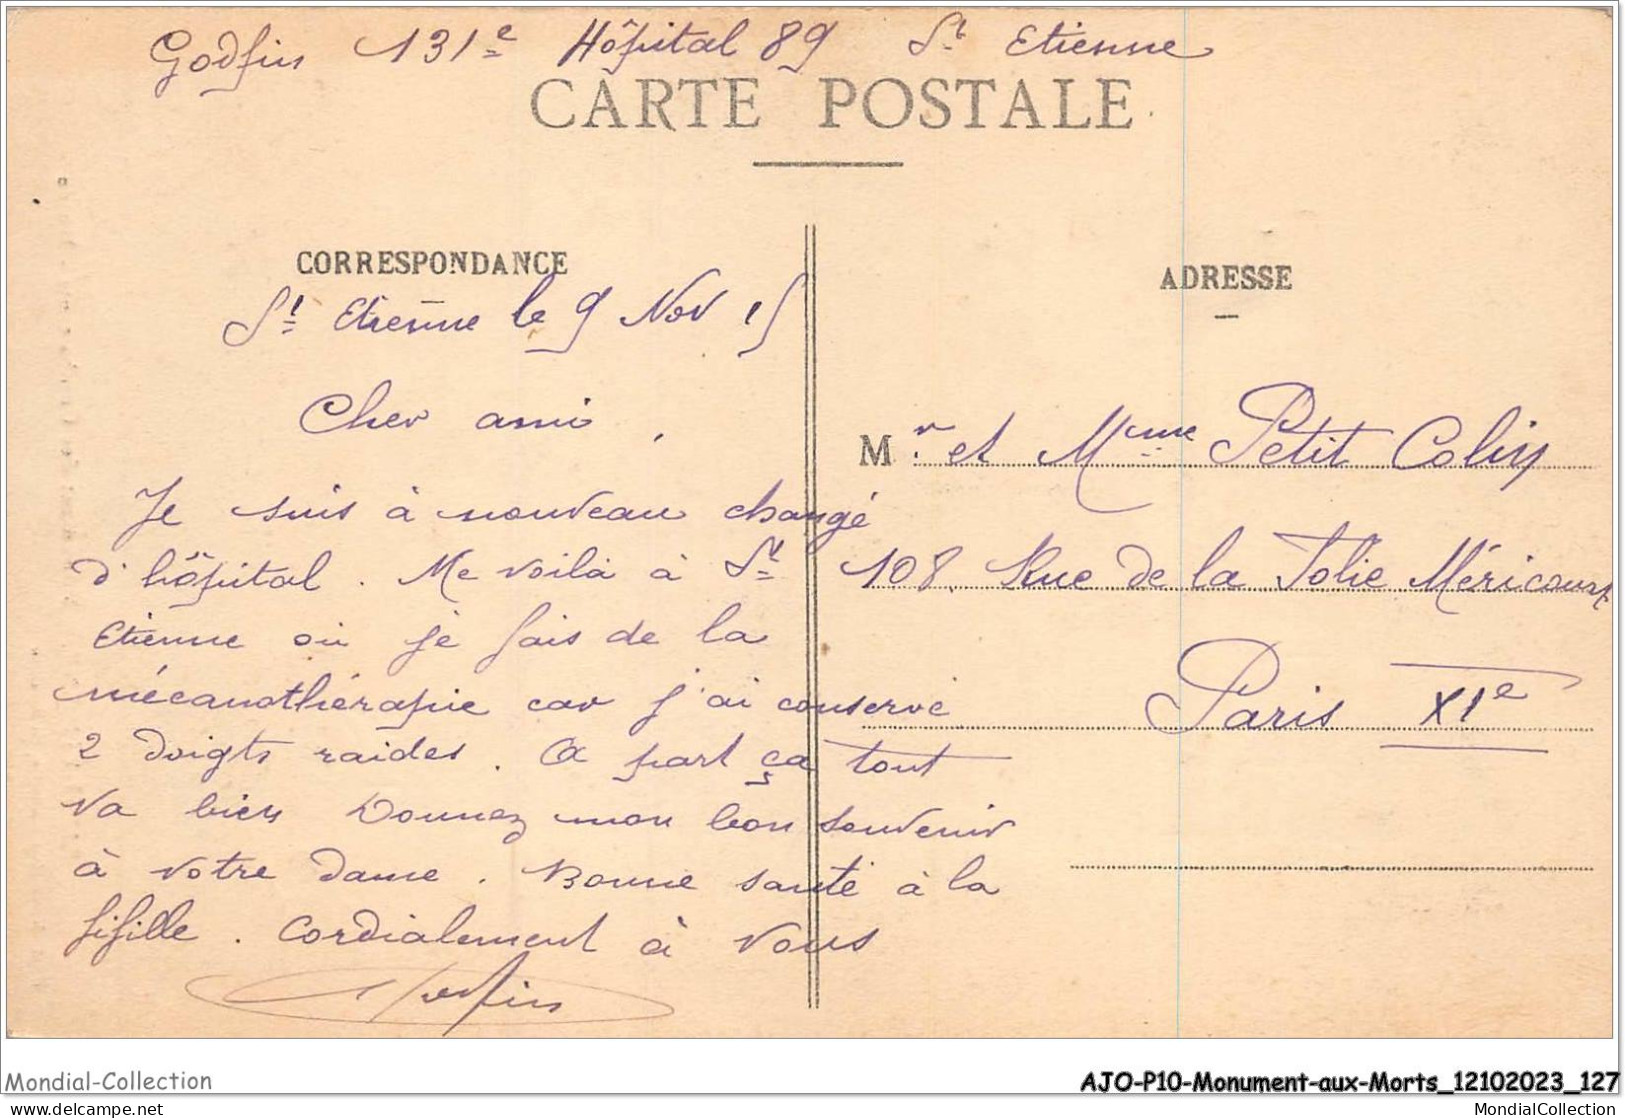 Godfin 131e Hôpital 89 St Etienne
CARTE POSTALE
CORRESPONDANCE
St Etienne le 9 Nov 15
Cher ami,
Je suis à nouveau changé
d'hôpital. Me voilà à St
Etienne où je fais de la
mécanothérapie car j'ai conservé
2 doigts raides. A part ça tout
va bien Donnez mon bon souvenir
à votre dame. Bonne santé à la
fifille. Cordialement à vous
Godfin
ADRESSE
Mr. et Mme Petit Colin
108, Rue de la Folie Méricourt
Paris XIe
Mondial-Collection
AJO-P10-Monument-aux-Morts_12102023_127
delcampe.net
MondialCollection